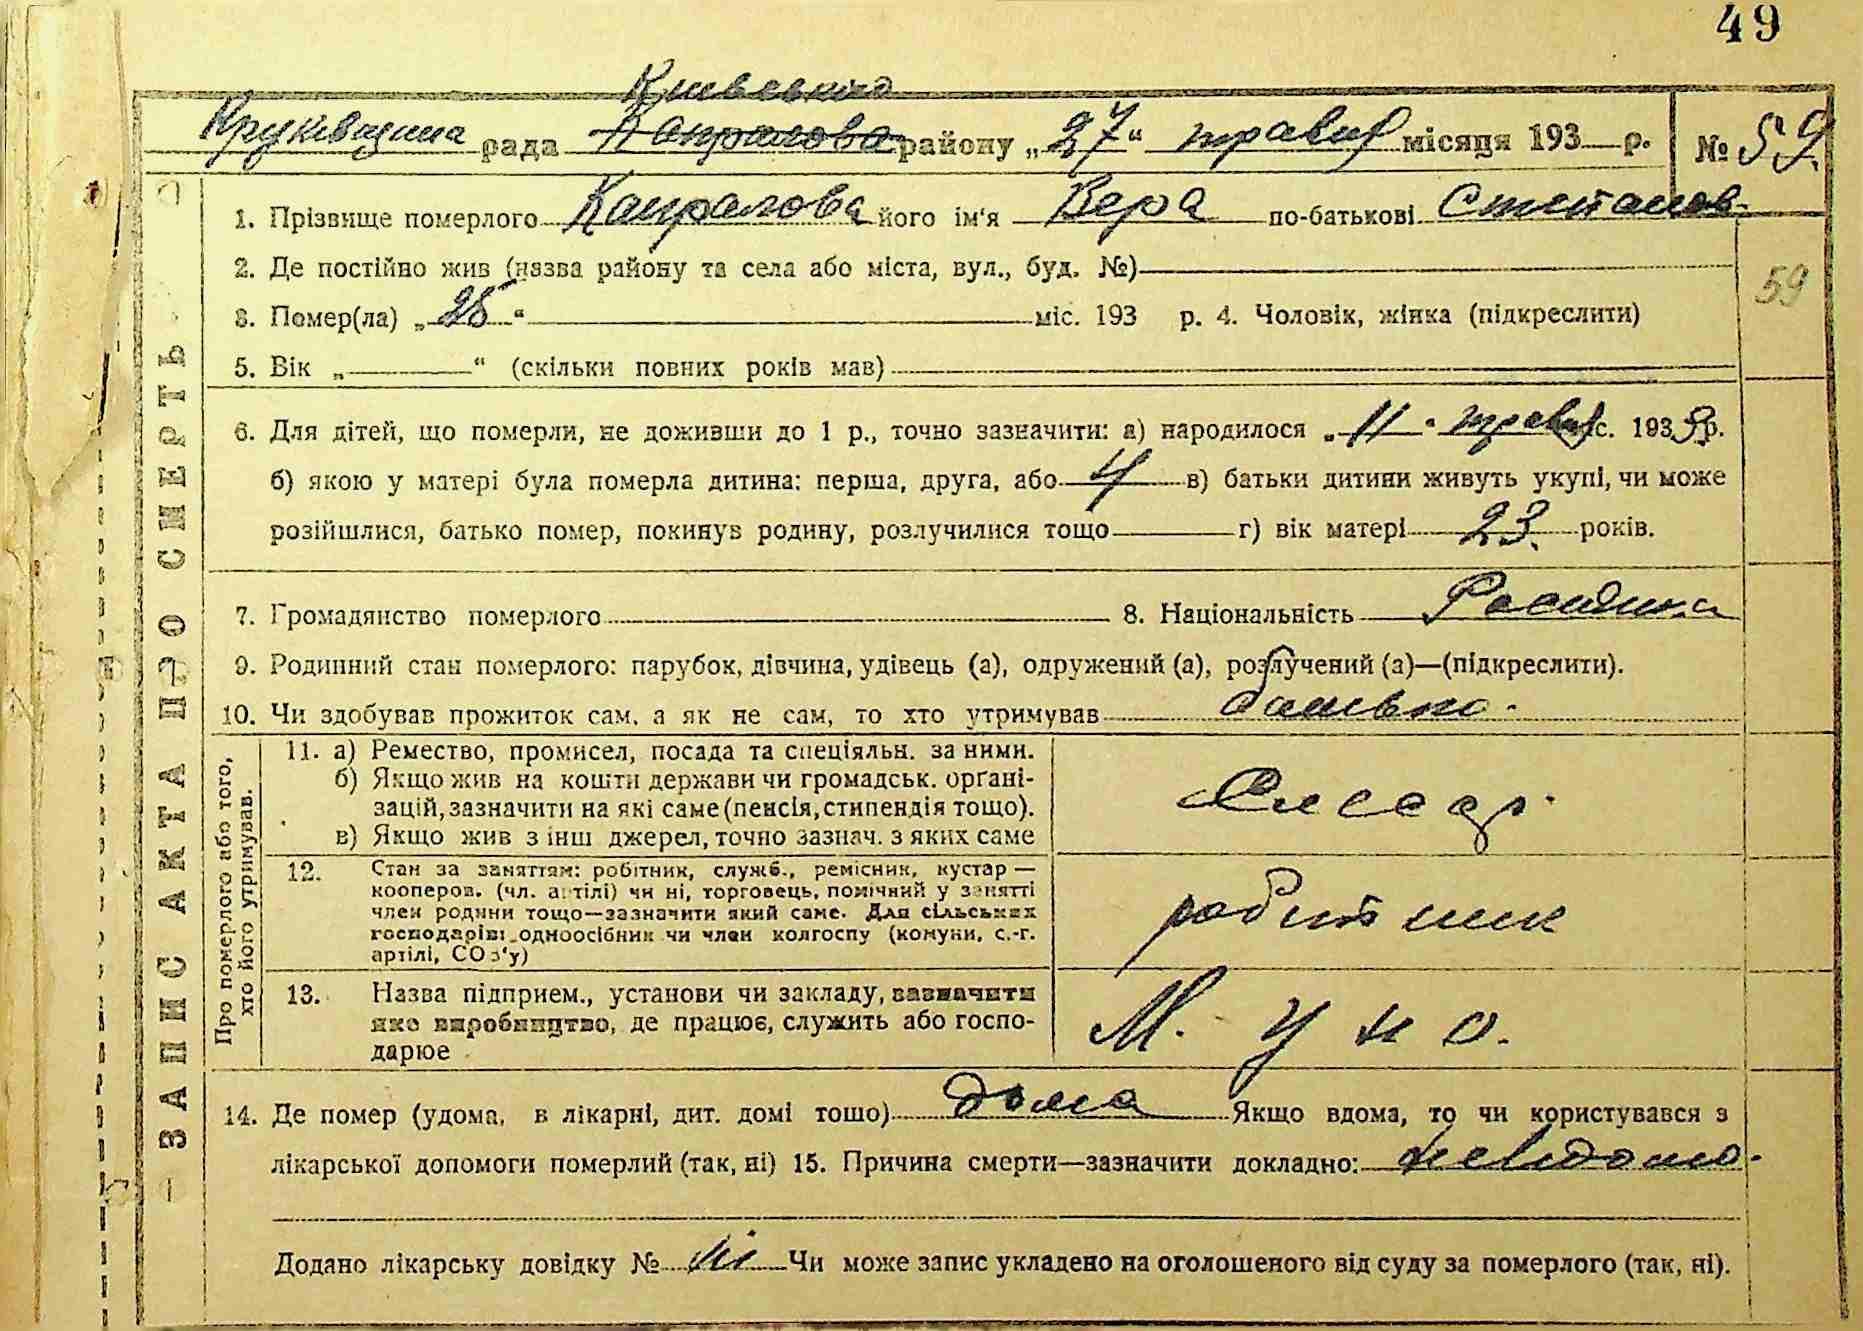 49
Київського
Круківщина рада Капралова району „27“ травня місяця 193 р. № 59.
1. Прізвище померлого Капралова його ім'я Вера по-батькові Степанов-
2. Де постійно жив (назва району та села або міста, вул., буд. №)
59
3. Помер(ла) „25“ міс. 193 р. 4. Чоловік, жінка (підкреслити)
5. Вік „ “ (скільки повних років мав)
6. Для дітей, що померли, не доживши до 1 р., точно зазначити: а) народилося „11“ травня с. 1933 р.
б) якою у матері була померла дитина: перша, друга, або 4 в) батьки дитини живуть укупі, чи може
розійшлися, батько помер, покинув родину, розлучилися тощо г) вік матері 23. років.
7. Громадянство померлого 8. Національність Росиянка
9. Родинний стан померлого: парубок, дівчина, удівець (а), одружений (а), розлучений (а)—(підкреслити).
10. Чи здобував прожиток сам, а як не сам, то хто утримував батько.
ЗАПИС АКТА ПРО СМЕРТЬ
Про померлого або того,
хто його утримував.
11. а) Ремество, промисел, посада та спеціяльн. за ними.
б) Якщо жив на кошти держави чи громадськ. органі-
зацій, зазначити на які саме (пенсія, стипендія тощо).
в) Якщо жив з інш джерел, точно зазнач. з яких саме
Слесар.
12. Стан за заняттям: робітник, служб., ремісник, кустар —
кооперов. (чл. артілі) чи ні, торговець, помічний у занятті
член родини тощо—зазначити який саме. Для сільських
господарів: одноосібник чи член колгоспу (комуни, с.-г.
артілі, СОЗ'у)
робитник
13. Назва підприєм., установи чи закладу, зазначити
яке виробництво, де працює, служить або госпо-
дарює
М. У н о.
14. Де помер (удома, в лікарні, дит. домі тощо) дома Якщо вдома, то чи користувався з
лікарської допомоги померлий (так, ні) 15. Причина смерти—зазначити докладно: невідомо.
Додано лікарську довідку № ні Чи може запис укладено на оголошеного від суду за померлого (так, ні).